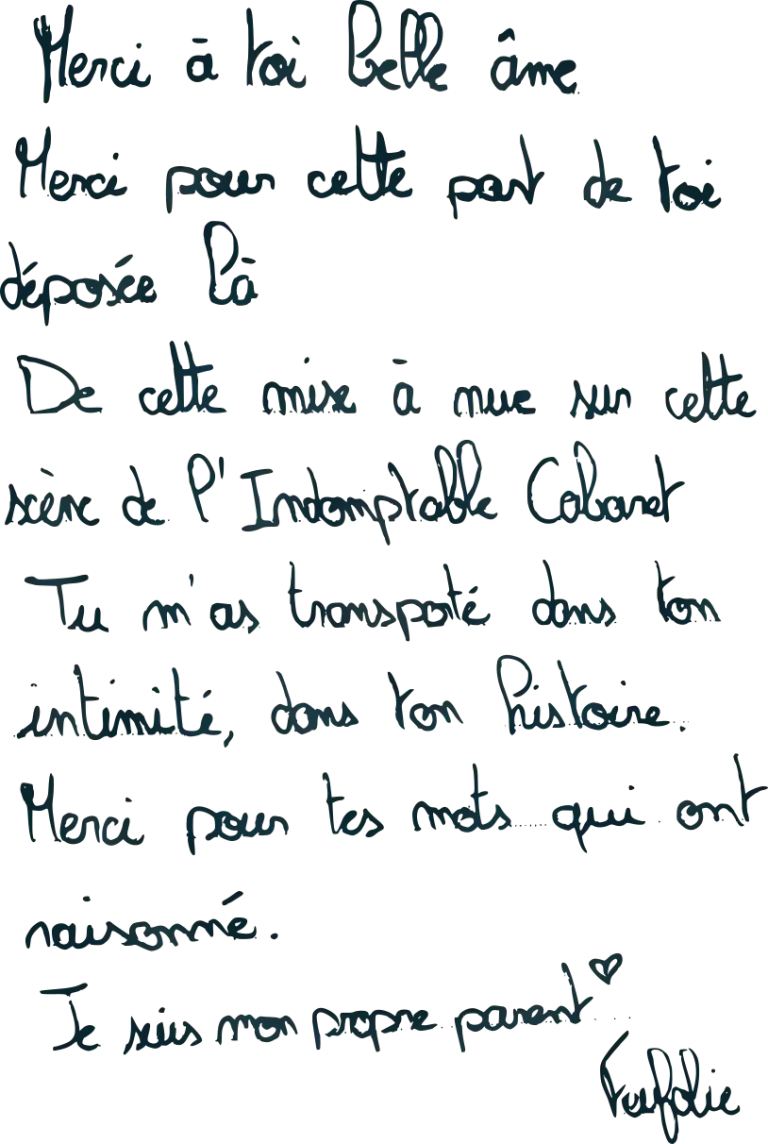 Merci à toi belle âme
Merci pour cette part de toi
déposée là
De cette mise à nue sur cette
scène de l'Indomptable Cabaret
Tu m'as transporté dans ton
intimité, dans ton histoire.
Merci pour tes mots qui ont
raisonné.
Je suis mon propre parent ♥